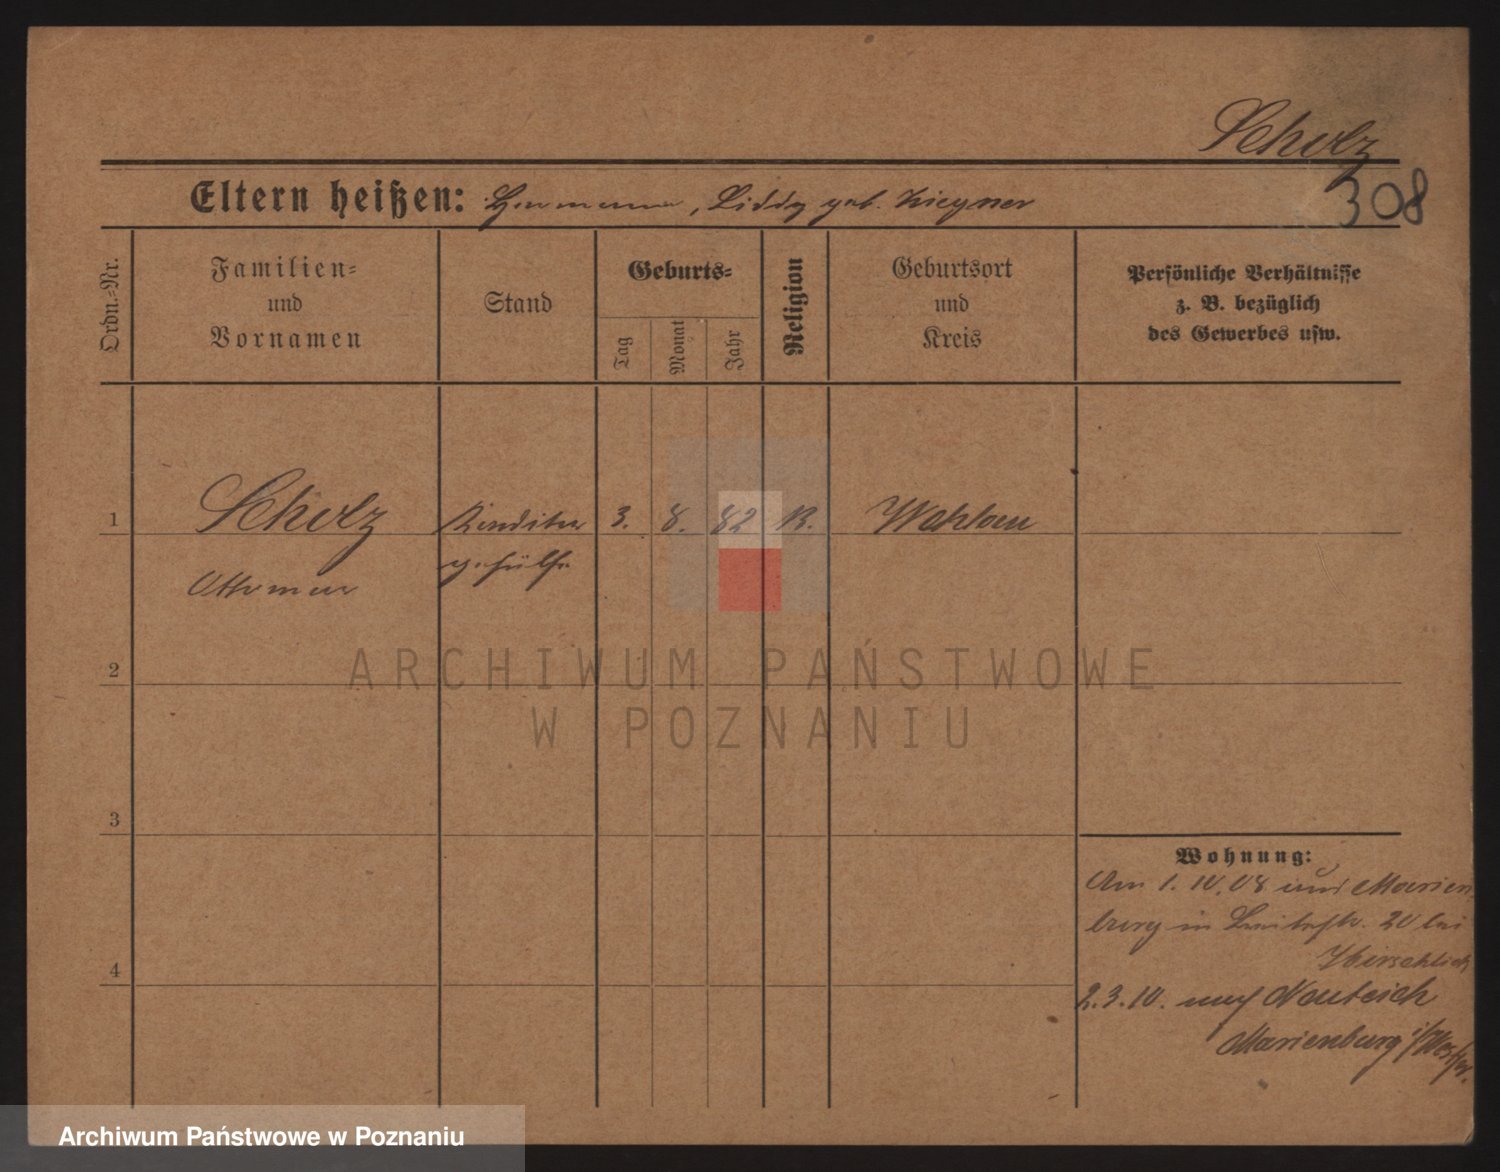 Scholz
308
Eltern heißen: Hermann, Liddy geb. Kiegner
Ordn.-Nr.
Familien-
und
Vornamen
Stand
Geburts-
Tag
Monat
Jahr
Religion
Geburtsort
und
Kreis
Persönliche Verhältnisse
z. B. bezüglich
des Gewerbes usw.
1
Scholz
Konditor
3.
8.
82
K.
Wohlau
gehülfe
Ottomar
2
ARCHIWUM PAŃSTWOWE
W POZNANIU
3
Wohnung:
Am 1. 10. 08 aus Marien
burg in 20 bei
4
2. 3. 10. nach Neuteich
Marienburg i/Westpr.
Archiwum Państwowe w Poznaniu